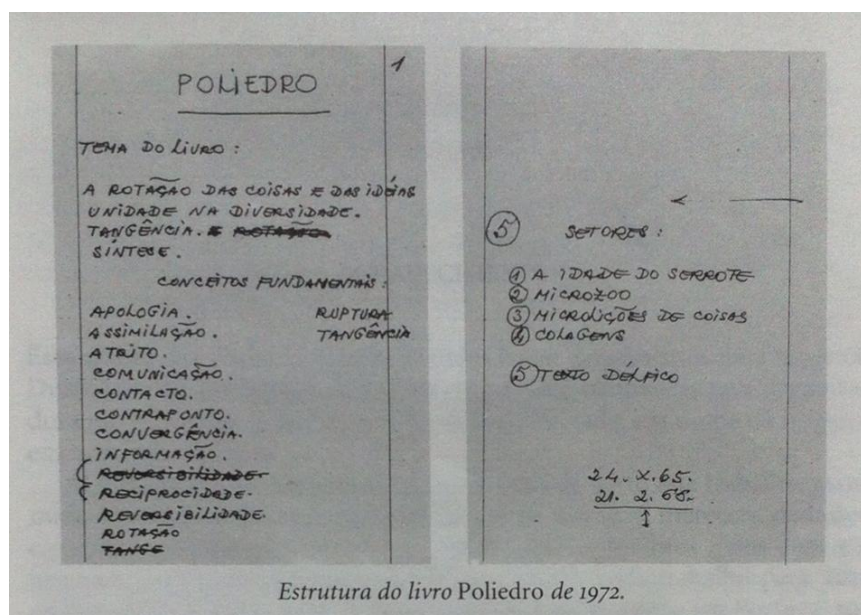 1
POLIEDRO
TEMA DO LIVRO:
A ROTAÇÃO DAS COISAS E DAS IDÉIAS
UNIDADE NA DIVERSIDADE.
TANGÊNCIA. E ROTAÇÃO
SÍNTESE.
CONCEITOS FUNDAMENTAIS:
APOLOGIA. RUPTURA
ASSIMILAÇÃO. TANGÊNCIA
ATRITO.
COMUNICAÇÃO.
CONTACTO.
CONTRAPONTO.
CONVERGÊNCIA.
INFORMAÇÃO.
REVERSIBILIDADE.
RECIPROCIDADE.
REVERSIBILIDADE.
ROTAÇÃO
TANGE
5 SETORES:
1 A IDADE DO SERROTE
2 MICROZOO
3 MICROLIÇÕES DE COISAS
4 COLAGENS
5 TEXTO DÉLFICO
24. X. 65.
21. 2. 66.
Estrutura do livro Poliedro de 1972.